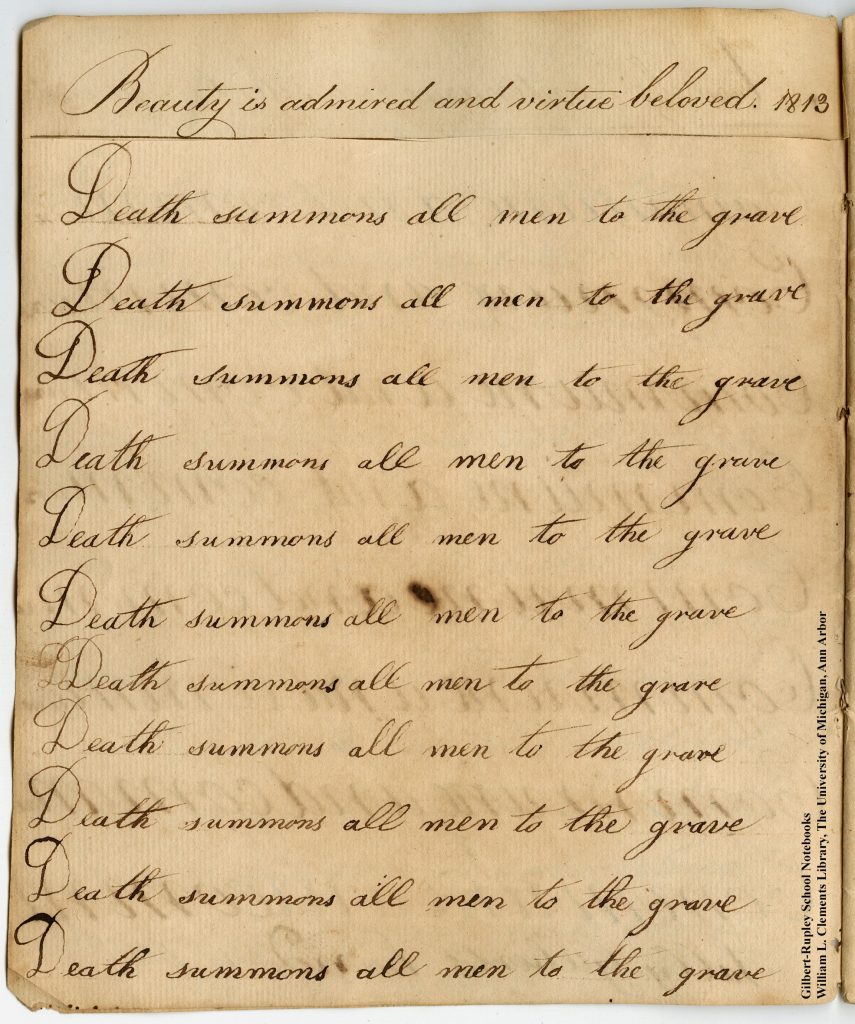 Beauty is admired and virtue beloved. 1813
Death summons all men to the grave
Death summons all men to the grave
Death summons all men to the grave
Death summons all men to the grave
Death summons all men to the grave
Death summons all men to the grave
Death summons all men to the grave
Death summons all men to the grave
Death summons all men to the grave
Death summons all men to the grave
Death summons all men to the grave
Gilbert-Rupley School Notebooks
William L. Clements Library, The University of Michigan, Ann Arbor